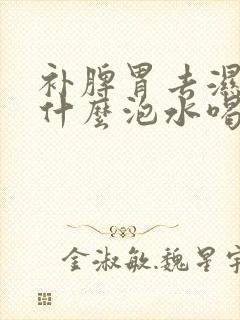 补脾胃去湿
什麼泡水喝
金淑敏.魏星宇